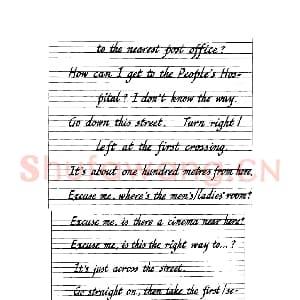 to the nearest post office?
How can I get to the People's Hos-
pital? I don't know the way.
Go down this street. Turn right/
left at the first crossing.
It's about one hundred metres from here.
Excuse me, where's the men's/ladies' room?
Excuse me, is there a cinema near here?
Excuse me, is this the right way to...?
It's just across the street.
Go straight on, then take the first/se-